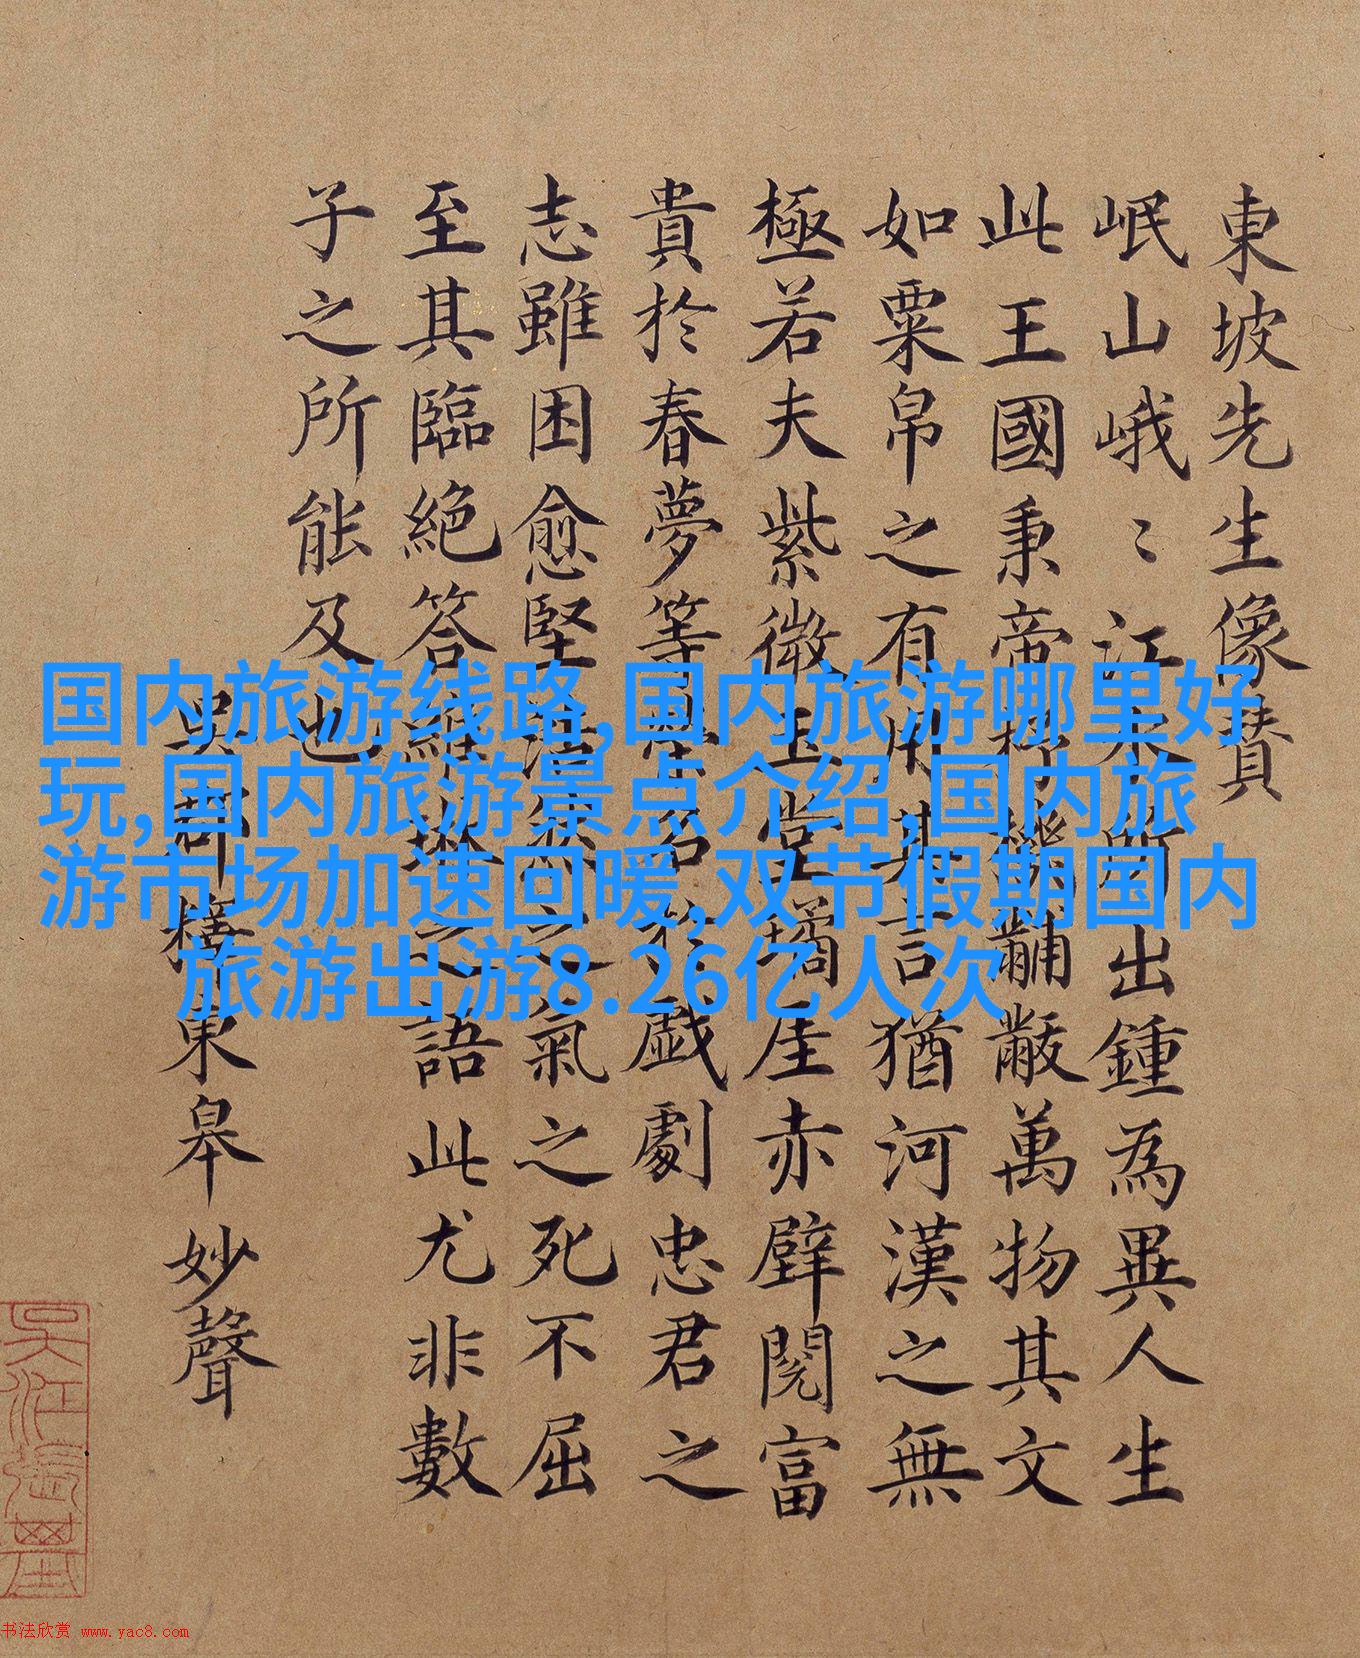 東坡先生像賛
岷山峨〻江水所出鍾為異人生
此王國秉帝杼機黼黻萬物其文
如粟帛之有用其言猶河漢之無
極若夫紫微玉堂瓊崖赤壁閱富
貴於春夢等榮名於戲劇忠君之
志雖困愈堅浩然之氣之死不屈
至其臨絕答維琳之語此尤非數
子之所能及也
吳郡釋東皋妙聲
国内旅游线路,国内旅游哪里好
玩,国内旅游景点介绍,国内旅
游市场加速回暖,双节假期国内
旅游出游8.26亿人次
书法欣赏 www.yac8.com